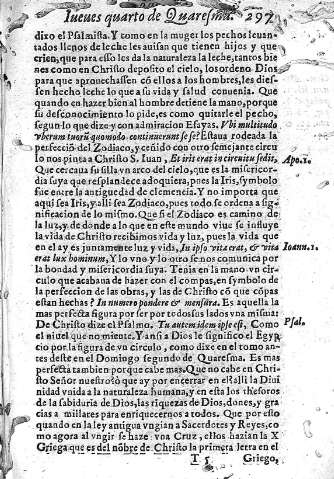 Iueves quarto de Quaresma. 297
dixo el Psalmista. Y como en la muger los pechos leuan-
tados llenos de leche les auisan que tienen hijos y que
crien, que para esso les da naturaleza la leche, tantos bie
nes como en Christo deposito el cielo, los ordeno Dios
para que aprouechassen cō ellos a los hombres, les dies-
sen hecho leche lo que a su vida y salud conuenia. Que
quando en hazer bien al hombre detiene la mano, porque
su desconocimiento lo pide, es como quitarle el pecho,
segun lo que dize y con admiracion Esayas. Vbi multitudo
viscerum tuorū quomodo continuerunt se? Estaua rodeada la
perfecciō del Zodiaco, y ceñido con otro semejante circu
lo nos pinta a Christo S. Iuan, Et iris erat in circuitu sedis, Apo. 1.
Que cercaua su silla vn arco del cielo, que es la misericor-
dia suya que resplandece adoquiera, pues la Iris, symbolo
fue entre la antiguedad de clemencia. Y no importa que
aqui sea Iris, y alli sea Zodiaco, pues todo se ordena a sig-
nificacion de lo mismo. Que si el Zodiaco es camino de
la luz, y de donde a lo que en este mundo viue se influye
la vida de Christo recibimos vida y luz, pues la vida que
en el ay es juntamente luz y vida, In ipso vita erat, & vita Ioann. 1.
erat lux hominum, Y lo vno y lo otro se nos comunica por
la bondad y misericordia suya. Tenia en la mano vn cir-
culo que acabaua de hazer con el compas, en symbolo de
la perfeccion de las obras, y las de Christo cō que cōpas
estan hechas? In numero pondere & mensura. Es aquella la
mas perfecta figura por ser por todos sus lados vna misma:
De Christo dize el Psalmo. Tu autem idem ipse es, Como Psal.
el nivel que no miente. Y ansi a Dios le significo el Egyp
cio por la figura de vn circulo, como dixe en el tomo an-
tes deste en el Domingo segundo de Quaresma. Es mas
perfecta tambien porque cabe mas. Que no cabe en Chri-
sto Señor nuestro? ò que ay por encerrar en el? alli la Diui
nidad vnida a la naturaleza humana, y en esta los thesoros
de la sabiduria de Dios, las riquezas de Dios, dones, y gra-
cias a millares para enriquecernos a todos. Que por esto
quando en la ley antigua vngian a Sacerdotes y Reyes, co
mo agora al vngir se haze vna Cruz, ellos hazian la X
Griega que es del nōbre de Christo la primera letra en el
T 5 Griego,